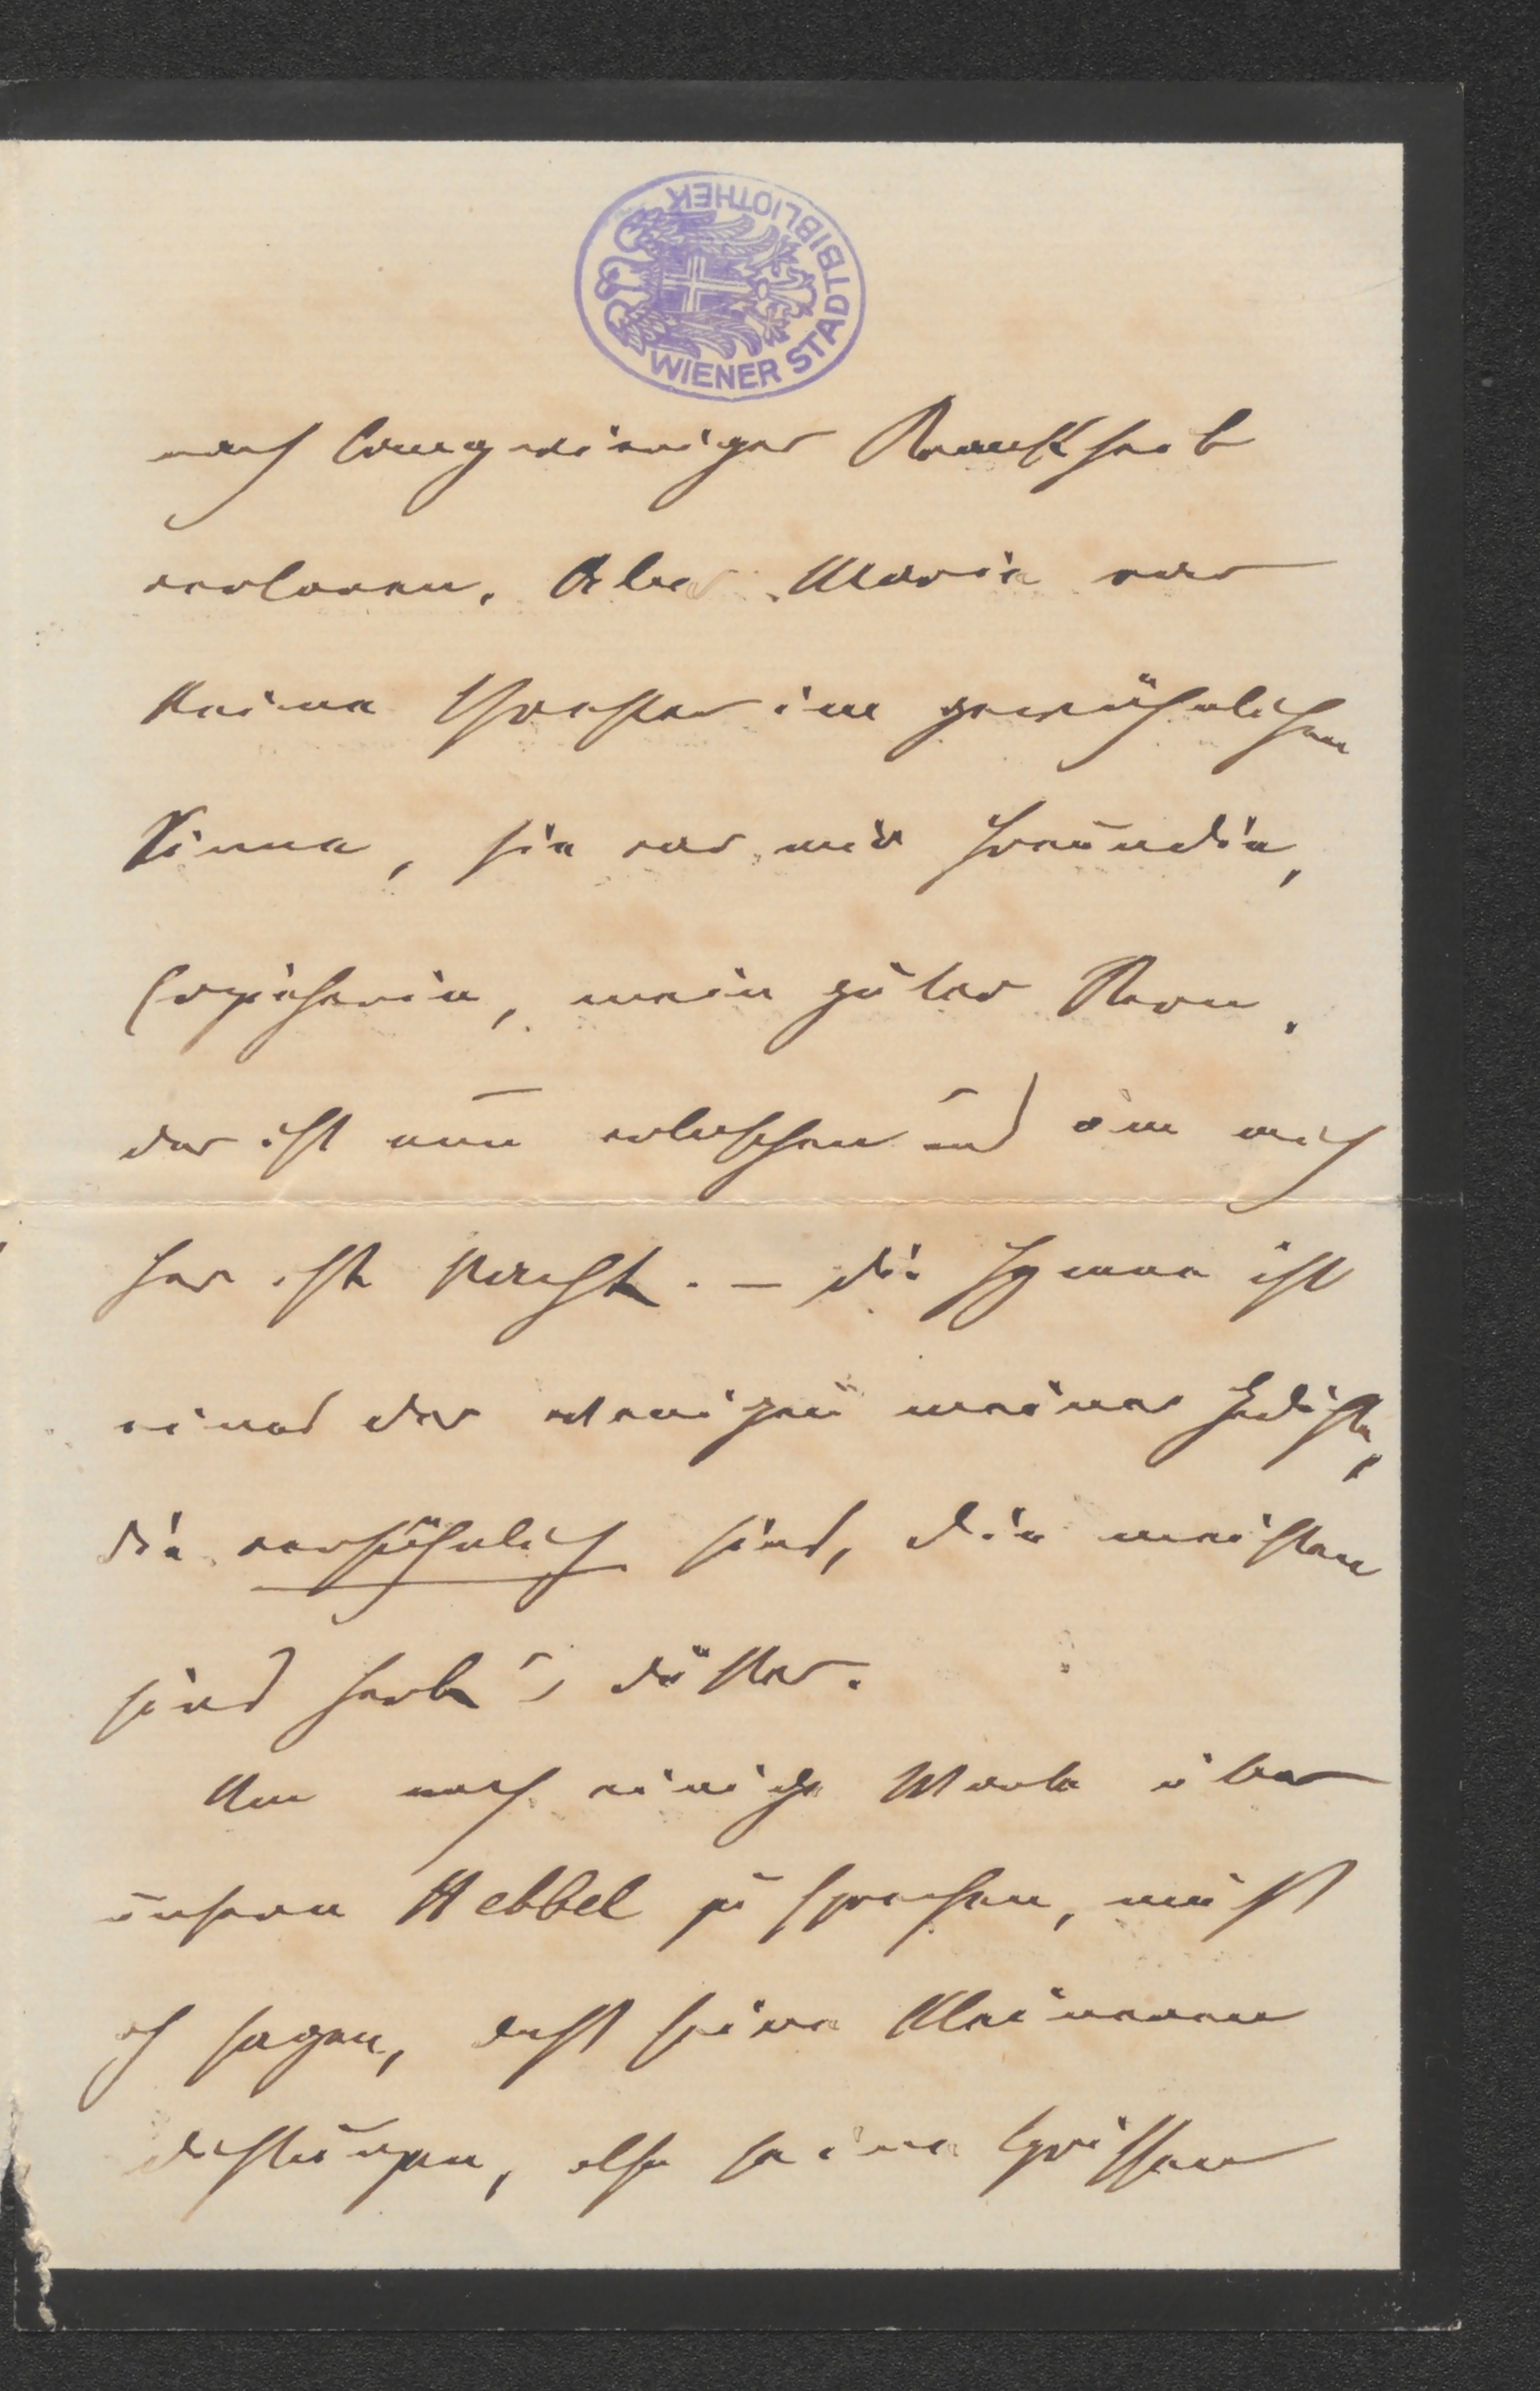 WIENER STADTBIBLIOTHEK
nach langwieriger Krankheit
verloren. Aber Marie war
keine Schwester im gewöhnlichen
Sinne, sie war mir Freundin,
Erzieherin, mein guter Stern.
der ist nun erloschen und um mich
her ist Nacht. – die Hymne ist
eines der wenigen meiner Gedichte,
die versöhnlich sind, die meisten
sind herb u düster.
Um noch einige Worte über
unsern Hebbel zu sprechen, muß
ich sagen, daß seine kleineren
dichtungen, also seine lyrischen